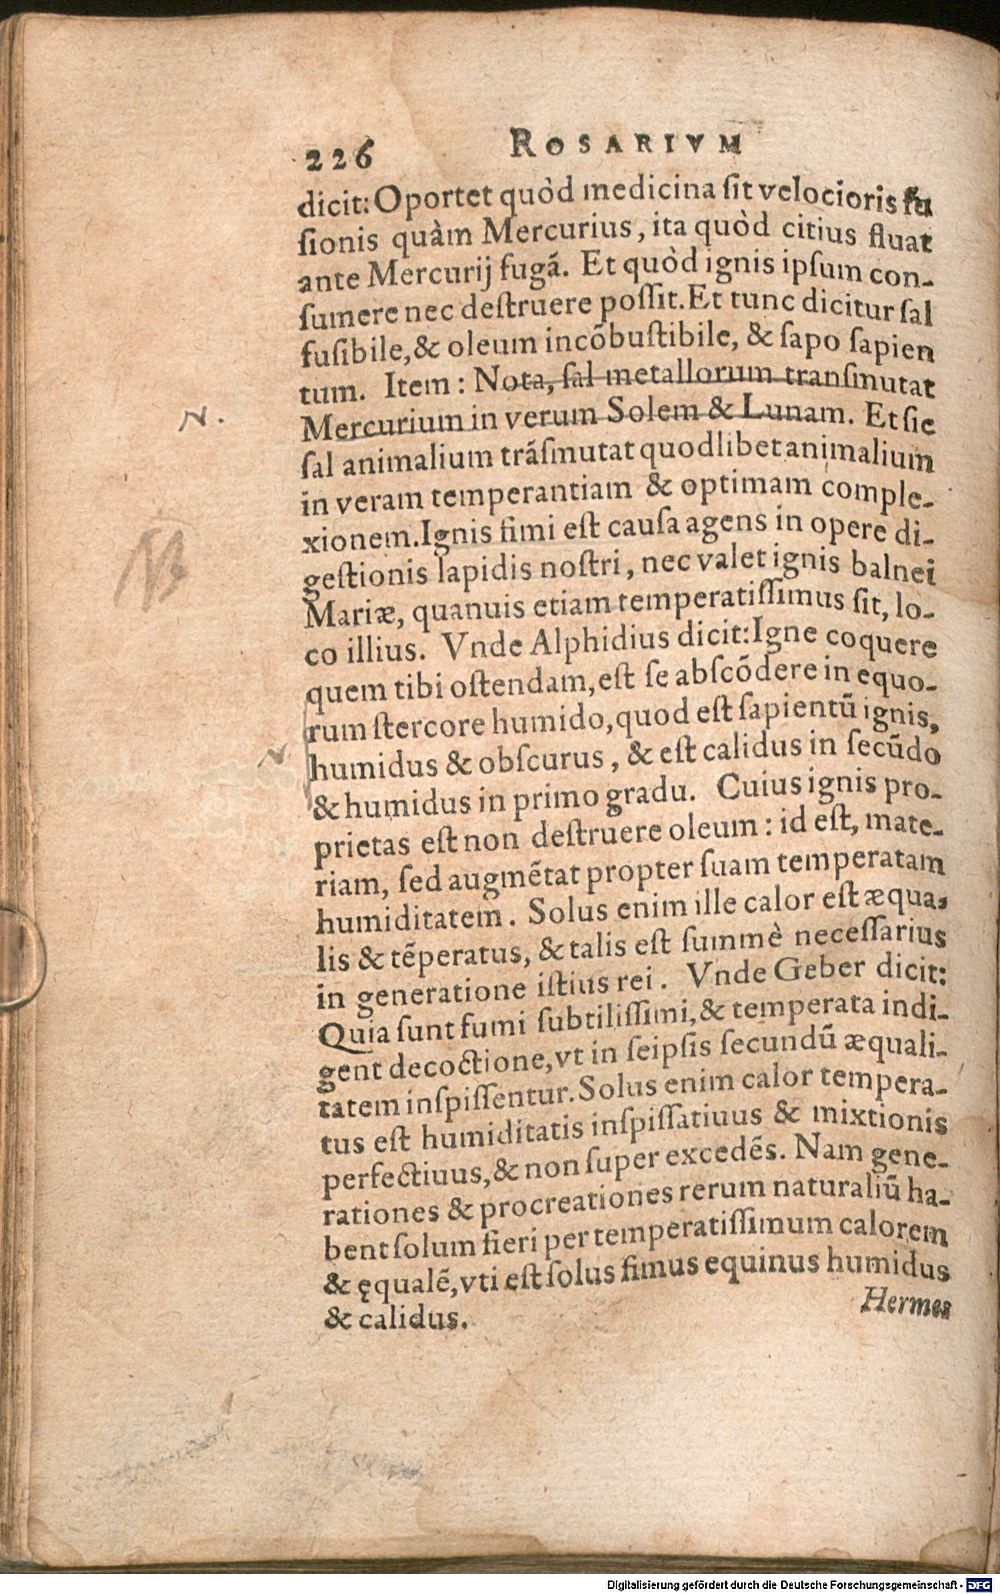 226 ROSARIVM
dicit: Oportet quòd medicina ſit velocioris fu
ſionis quàm Mercurius, ita quòd citius fluat
ante Mercurij fugã. Et quòd ignis ipſum con-
ſumere nec deſtruere poſſit. Et tunc dicitur ſal
fuſibile, & oleum incõbuſtibile, & ſapo ſapien
tum. Item: Nota, ſal metallorum tranſmutat
Mercurium in verum Solem & Lunam. Et ſic
ſal animalium trãſmutat quodlibet animalium
N.
in veram temperantiam & optimam comple-
xionem. Ignis fimi eſt cauſa agens in opere di-
geſtionis lapidis noſtri, nec valet ignis balnei
Mariæ, quanuis etiam temperatiſſimus ſit, lo-
co illius. Vnde Alphidius dicit: Igne coquere
quem tibi oſtendam, eſt ſe abſcõdere in equo-
rum ſtercore humido, quod eſt ſapientũ ignis,
humidus & obſcurus, & eſt calidus in ſecũdo
N
& humidus in primo gradu. Cuius ignis pro-
prietas eſt non deſtruere oleum: id eſt, mate-
riam, ſed augmẽtat propter ſuam temperatam
humiditatem. Solus enim ille calor eſt æqua-
lis & tẽperatus, & talis eſt ſummè neceſſarius
in generatione iſtius rei. Vnde Geber dicit:
Quia ſunt fumi ſubtiliſſimi, & temperata indi-
gent decoctione, vt in ſeipſis ſecundũ æquali-
tatem inſpiſſentur. Solus enim calor tempera-
tus eſt humiditatis inſpiſſatiuus & mixtionis
perfectiuus, & non ſuper excedẽs. Nam gene-
rationes & procreationes rerum naturaliũ ha-
bent ſolum fieri per temperatiſſimum calorem
& ęqualẽ, vti eſt ſolus fimus equinus humidus
& calidus.
Hermes
Digitalisierung gefördert durch die Deutsche Forschungsgemeinschaft - DFG